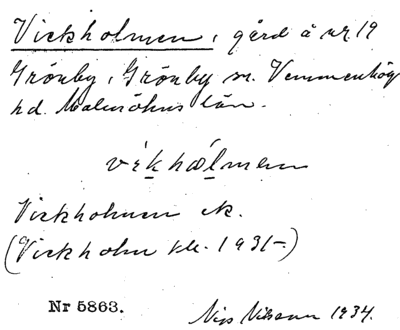 Vickholmen, gård å nr 19
Grönby, Grönby sn. Vemmenhög
hd. Malmöhus län.
vikhålmenn
Vickholmen ek.
(Vickholm kk. 1931-.)
Nr 5863.
Nils Nilsson 1934.